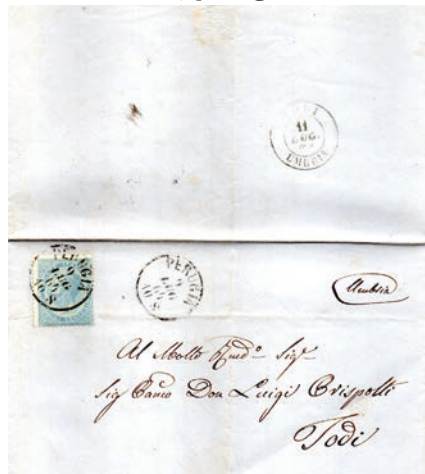 11
LUG.
UMBRIA
PERUGIA
9
LUG
PERUGIA
9
LUG
Umbria
Al Molto Rndo Sigr
Sig Canco Don Luigi Crispolti
Todi